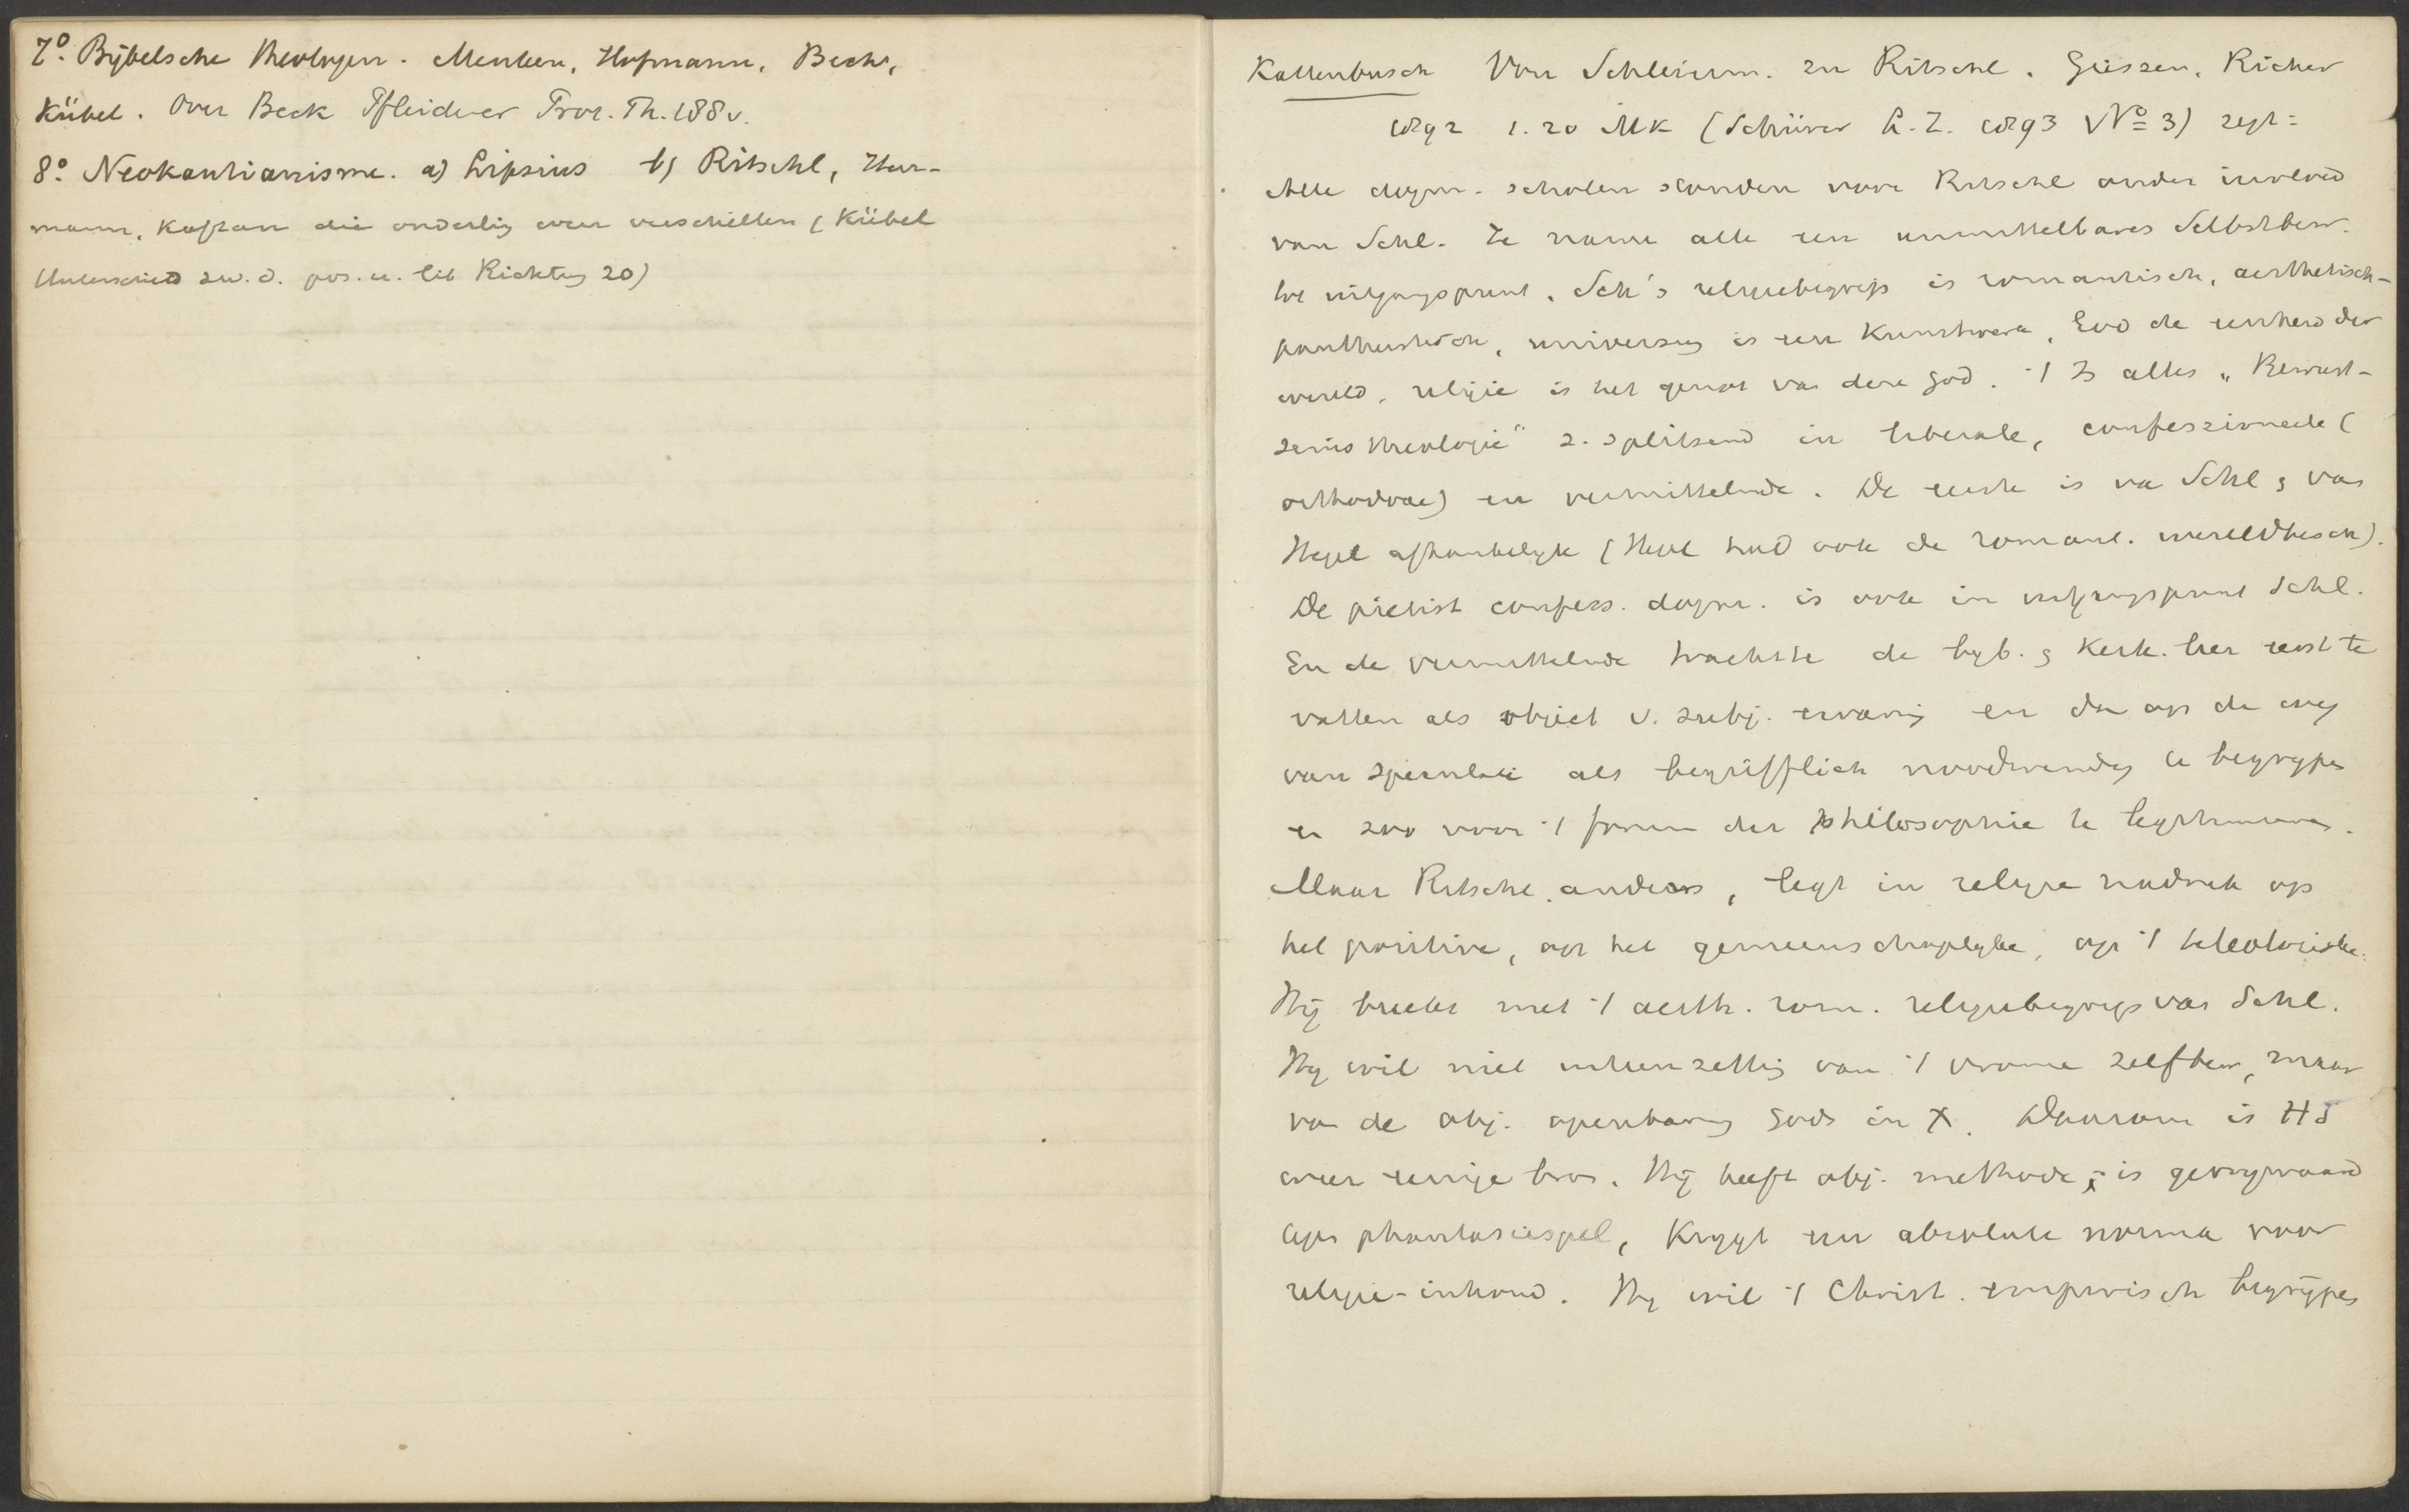 7º. Bijbelsche theologen. Menken, Hofmann, Beck,
Kübel. Over Beck Pfleiderer Prot. Th. 188 v.
8º. Neokantianisme. a) Lipsius b) Ritschl, Herr-
mann, Kaftan die onderling weer verschillen (Kübel
Unterschied zw. d. pos. u. lib Richtung 20)
Kattenbusch Von Schleierm. zu Ritschl. Giessen. Ricker
1892 1.20 Mk (Schürer L.Z. 1893 Nº 3) zegt:
Alle dogm. scholen stonden voor Ritschl onder invloed
van Schl. Ze namen alle een unmittelbares Selbstbew.
tot uitgangspunt. Sch's religiebegrip is romantisch, aesthetisch-
pantheistisch, universum is een Kunstwerk, God de eenheid der
wereld, religie is het genot van deze God. 't Is alles „Bewust-
zeins theologie" z. splitsend in liberale, confessioneele (
orthodoxe) en vermittelnde. De eerste is van Schl & van
Hegel afhankelijk (Hegel had ook de romant. wereldbesch).
De piëtist confess. dogm. is ook in uitgangspunt Schl.
En de vermittelnde trachtte de byb. & Kerk. leer eerst te
vatten als object v. subj. ervaring en dan op de weg
van speculatie als begrifflich noodwendig te begrypen
en zoo voor 't forum der philosophie te legitimeeren.
Maar Ritschl anders, legt in religie nadruk op
het positieve, op het gemeenschaplyke, op 't teleologische.
Hij breekt met 't aesth. rom. religiebegrip van Schl.
Hy wil niet uiteenzetting van 't vrome zelfbew, maar
van de obj. openbaring Gods in X. Daarom is HS
weer eenige bron. Hij heeft obj. methode, is gevrywaard
tegen phantasiespel, Krygt een absolute norma voor
religie-inhoud. Hy wil 't Christ. empirisch begrijpen